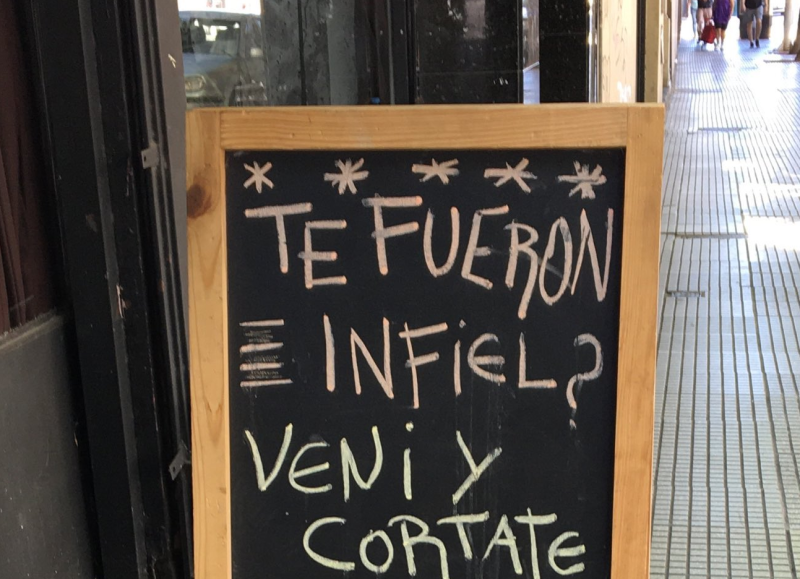 TE FUERON
INFIEL?
VENI Y
CORTATE